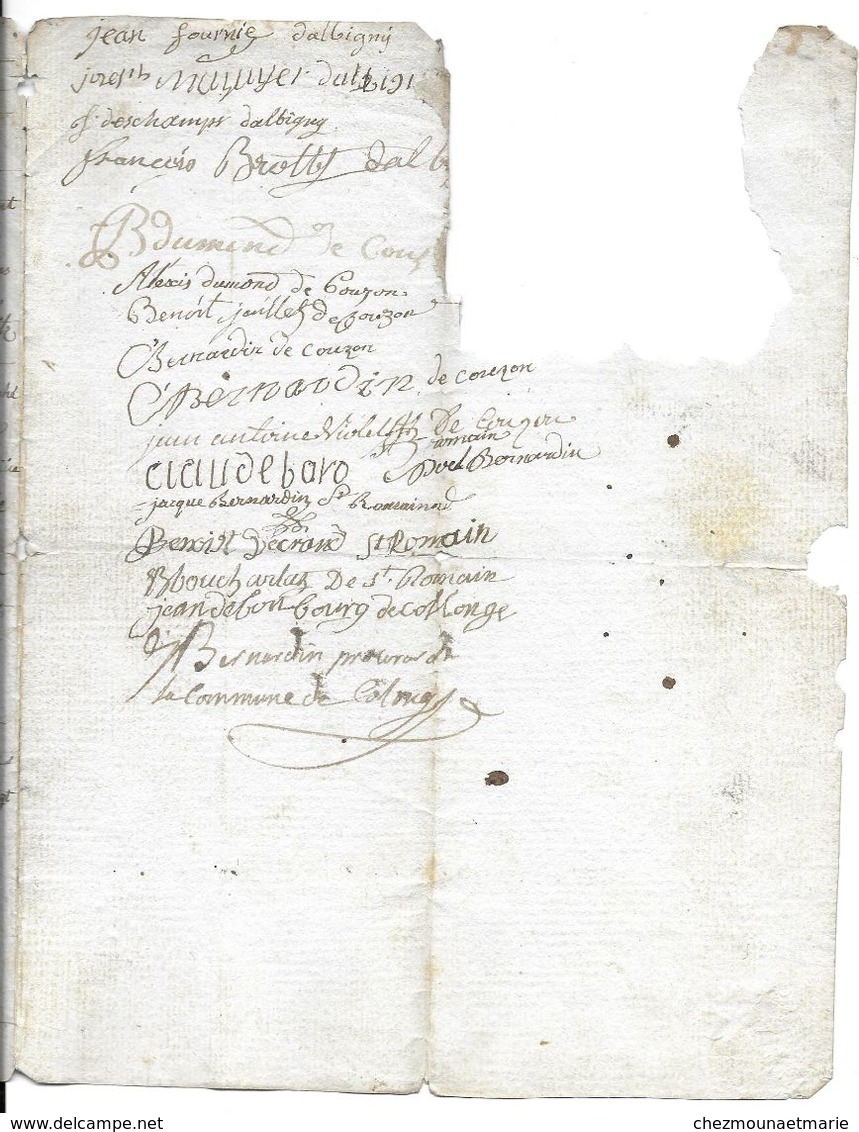 jean fournie dalbigny
joseph dalbigi
f. deschamps dalbigny
francois Brotte dalb
B dumond de Couz
Alexis dumond de Couzon
Benoit jaillet de couzon
Bernardin de couzon
Bernardin de couzon
jean antoine Violet De Couzon
claude baro St romain
poel Bernardin
jacque Bernardin St Romain
Benoist Decrand St Romain
B boucharlat De St. Romain
jean debonbourg de collonge
Bernardin procureur de
la Commune de Colonge
chezmounaetmarie